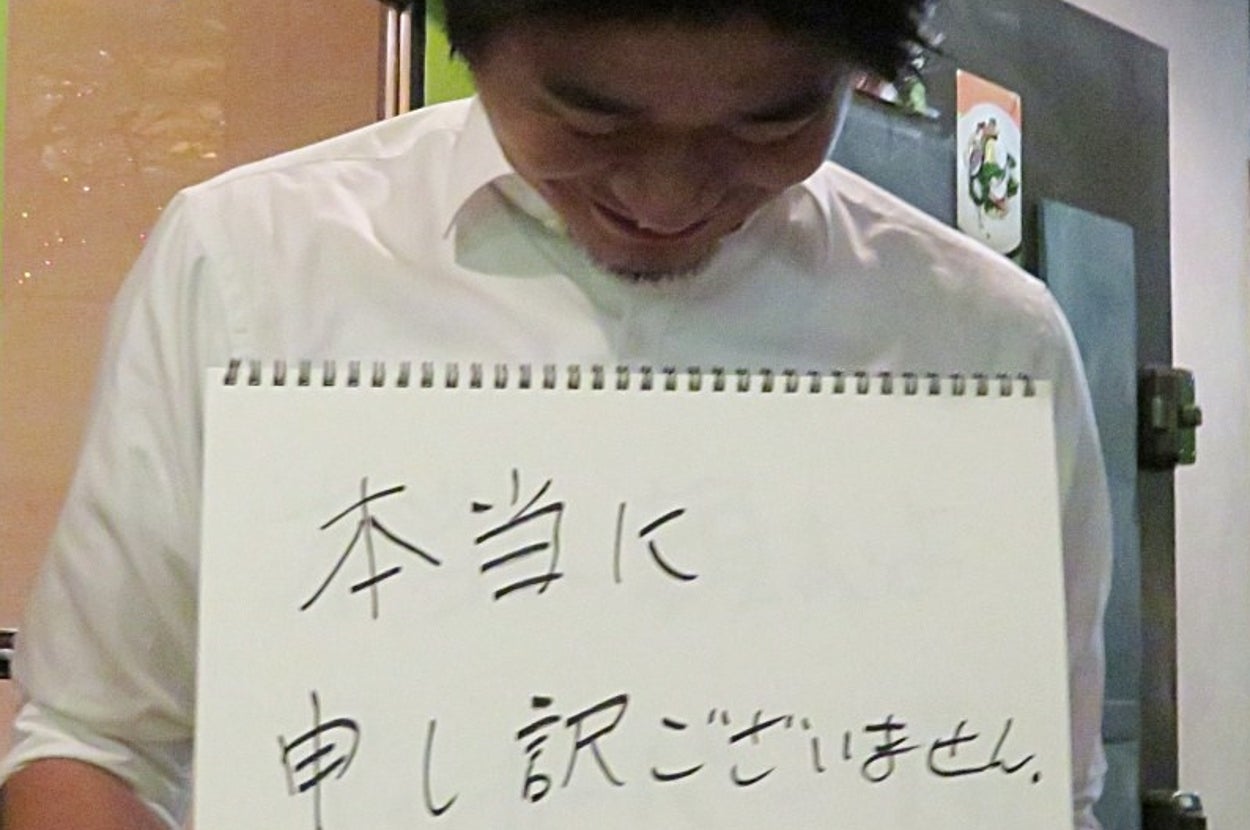 本当に
申し訳ございません.